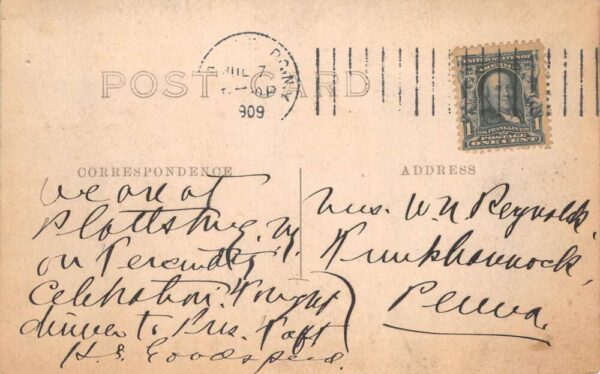 JUL 7
1909
POST CARD
UNITED STATES OF AMERICA
1 FRANKLIN 1
POSTAGE
ONE CENT
CORRESPONDENCE
ADDRESS
We are at
Plattsburg, N.Y.
on Tercentary
Celebration. Tonight
dinner to Pres. Taft
H.S. Goodspeed.
Mrs. W N Reynolds,
Tunkhannock,
Penna.